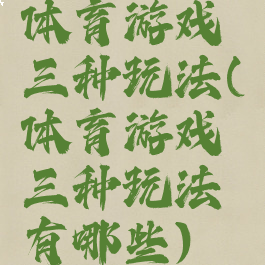 体育游戏
三种玩法(
体育游戏
三种玩法
有哪些)